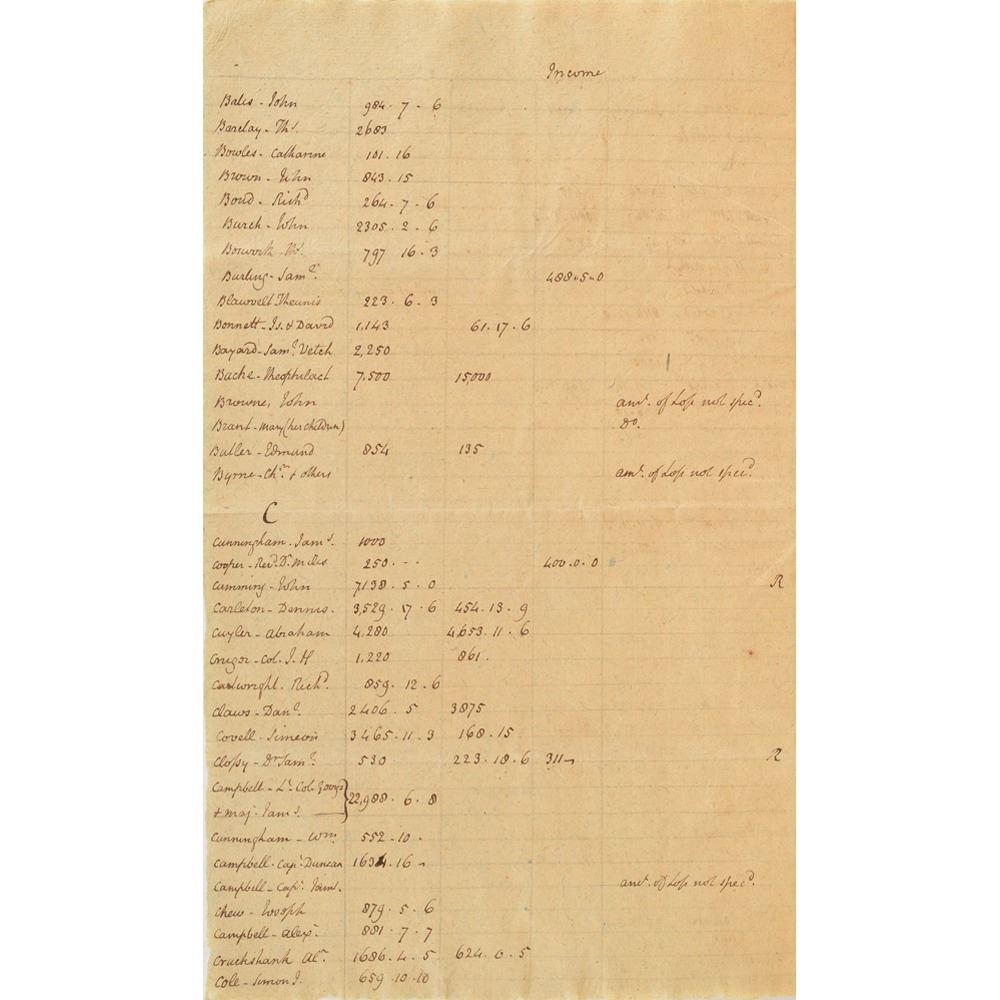 Income
Bates - John 984 . 7 - 6
Barclay - Thos. 2683
Bowles - Catharine 101 . 16
Brown - John 843 . 15
Boud - Richd 264 - 7 - 6
Burch - John 2305 . 2 - 6
Bosworth - Thos. 797 16 . 3
Burling - Saml. 488 . 5 . 0
Blawvelt Theunis 223 . 6 . 3
Bonnett - Is. & David 1,143 61 . 17 . 6
Bayard - Saml. Vetch 2,250
Bache - Theophilact 7.500 15000
Browne, John amt. of Loss not specd.
Brant - Mary (her children) Do.
Butler - Edmund 854 135
Byrne - Chrr. & others amt. of Loss not specd.
C
Cunningham - Jams. 1000
Cooper - Revd. Dr. Miles 250 . - - 400 . 0 . 0
Cumming - John 7138 . 5 . 0 R
Carleton - Dennis. 3,529 . 17 . 6 454 . 13 . 9
Cuyler - Abraham 4,280 4,653 . 11 . 6
Cruger - Col. J. H 1.220 861 .
Cartwright - Richd. 859 . 12 . 6
Claws - Danl. 2406 . 5 3875
Covell - Simeon 3465 . 11 . 3 168 . 15
Clossy - Dr Saml. 530 223 . 18 . 6 311 R
Campbell - Lt. Col. } 22,988 . 6 . 8
& Maj. Jams.
Cunningham - Wm. 552 . 10 -
Campbell - Capt. Duncan 1634 . 16
Campbell - Capt. amt. of Loss not specd.
Chew - Joseph 879 . 5 . 6
Campbell - Alexr. 881 . 7 . 7
Cruckshank Alr. 1686 . 4 . 5 624 . 0 . 5
Cole - Simon J. 659 . 10 . 10